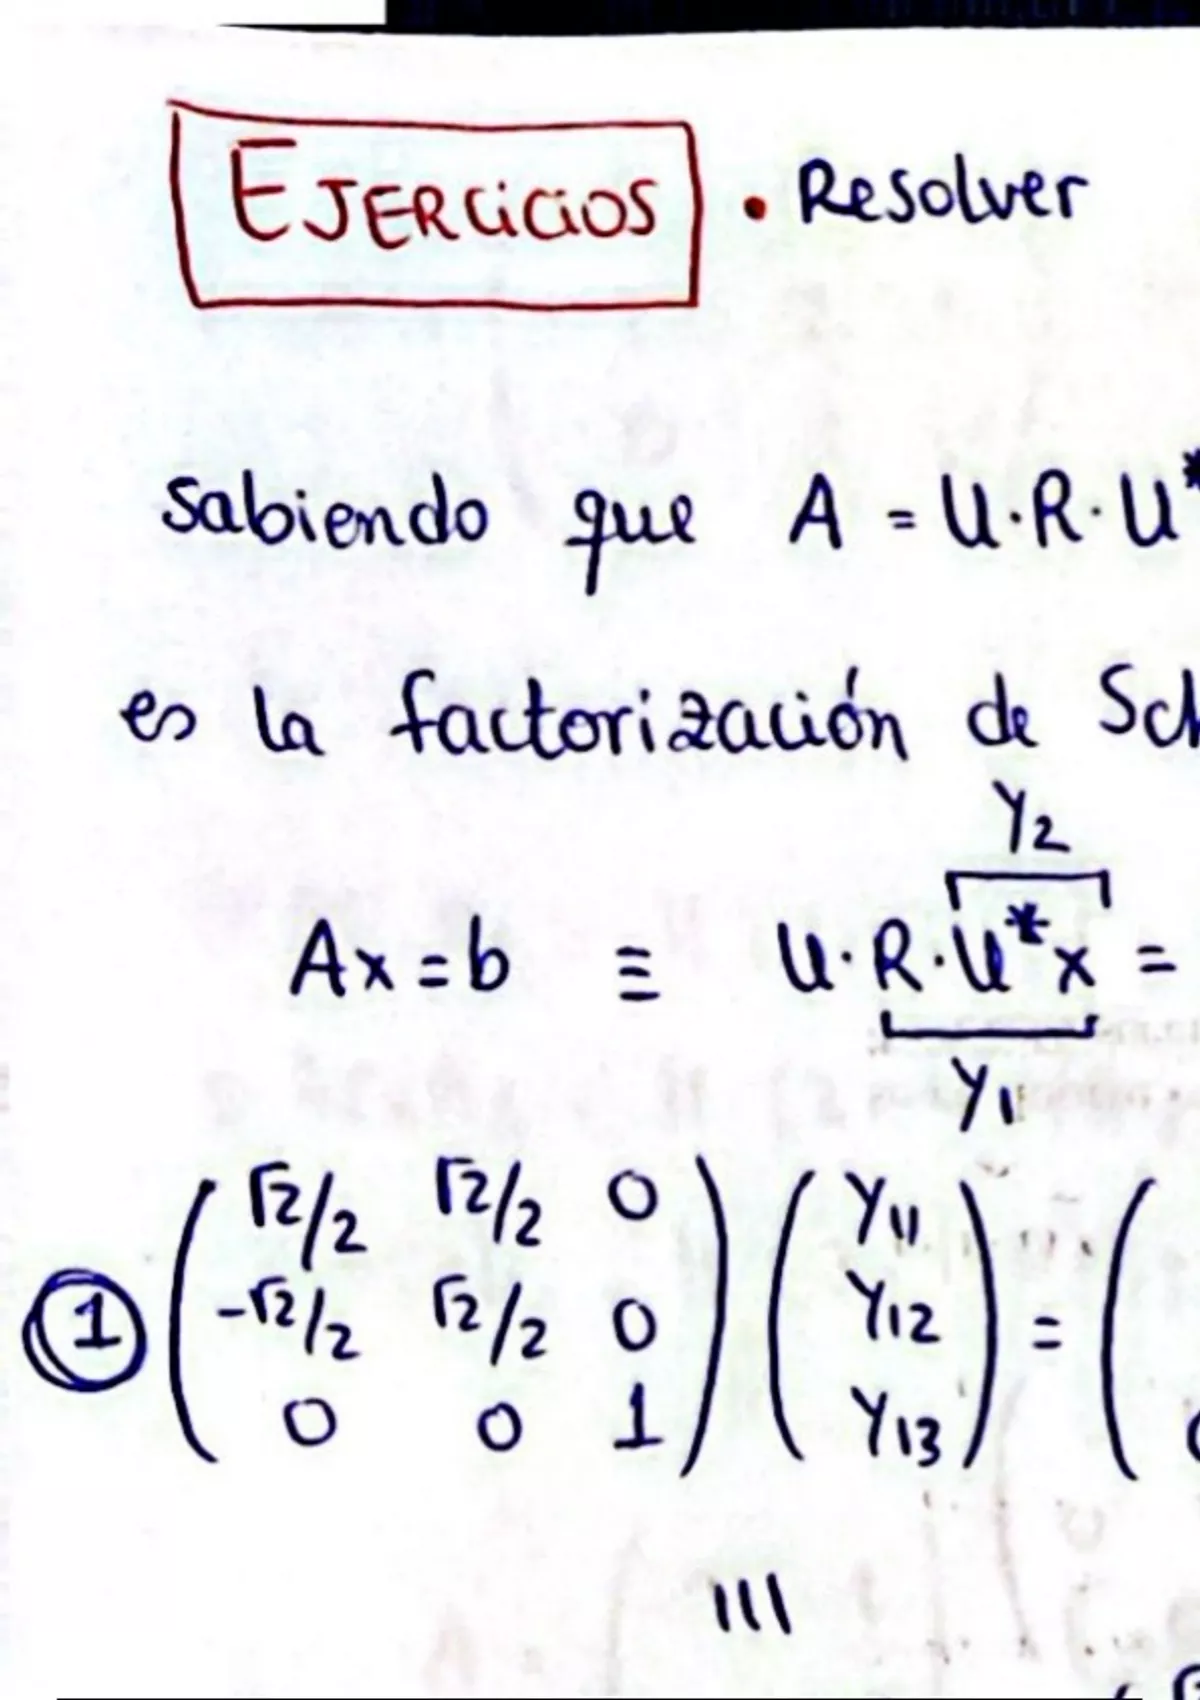 EJERCICIOS • Resolver
sabiendo que A = U·R·U*
es la factorización de Sch
Y2
Ax=b ≡ U·R·U*x =
Y1
√2/2 √2/2 0 Y11
① -√2/2 √2/2 0 Y12 =
0 0 1 Y13